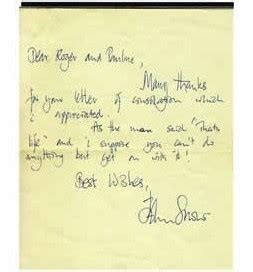 Dear Roger and Pauline,
Many thanks
for your letter of consolation which
is appreciated.
As the man said "that's
life" and i suppose you can't do
anything but get on with it!
Best Wishes,
John Snow